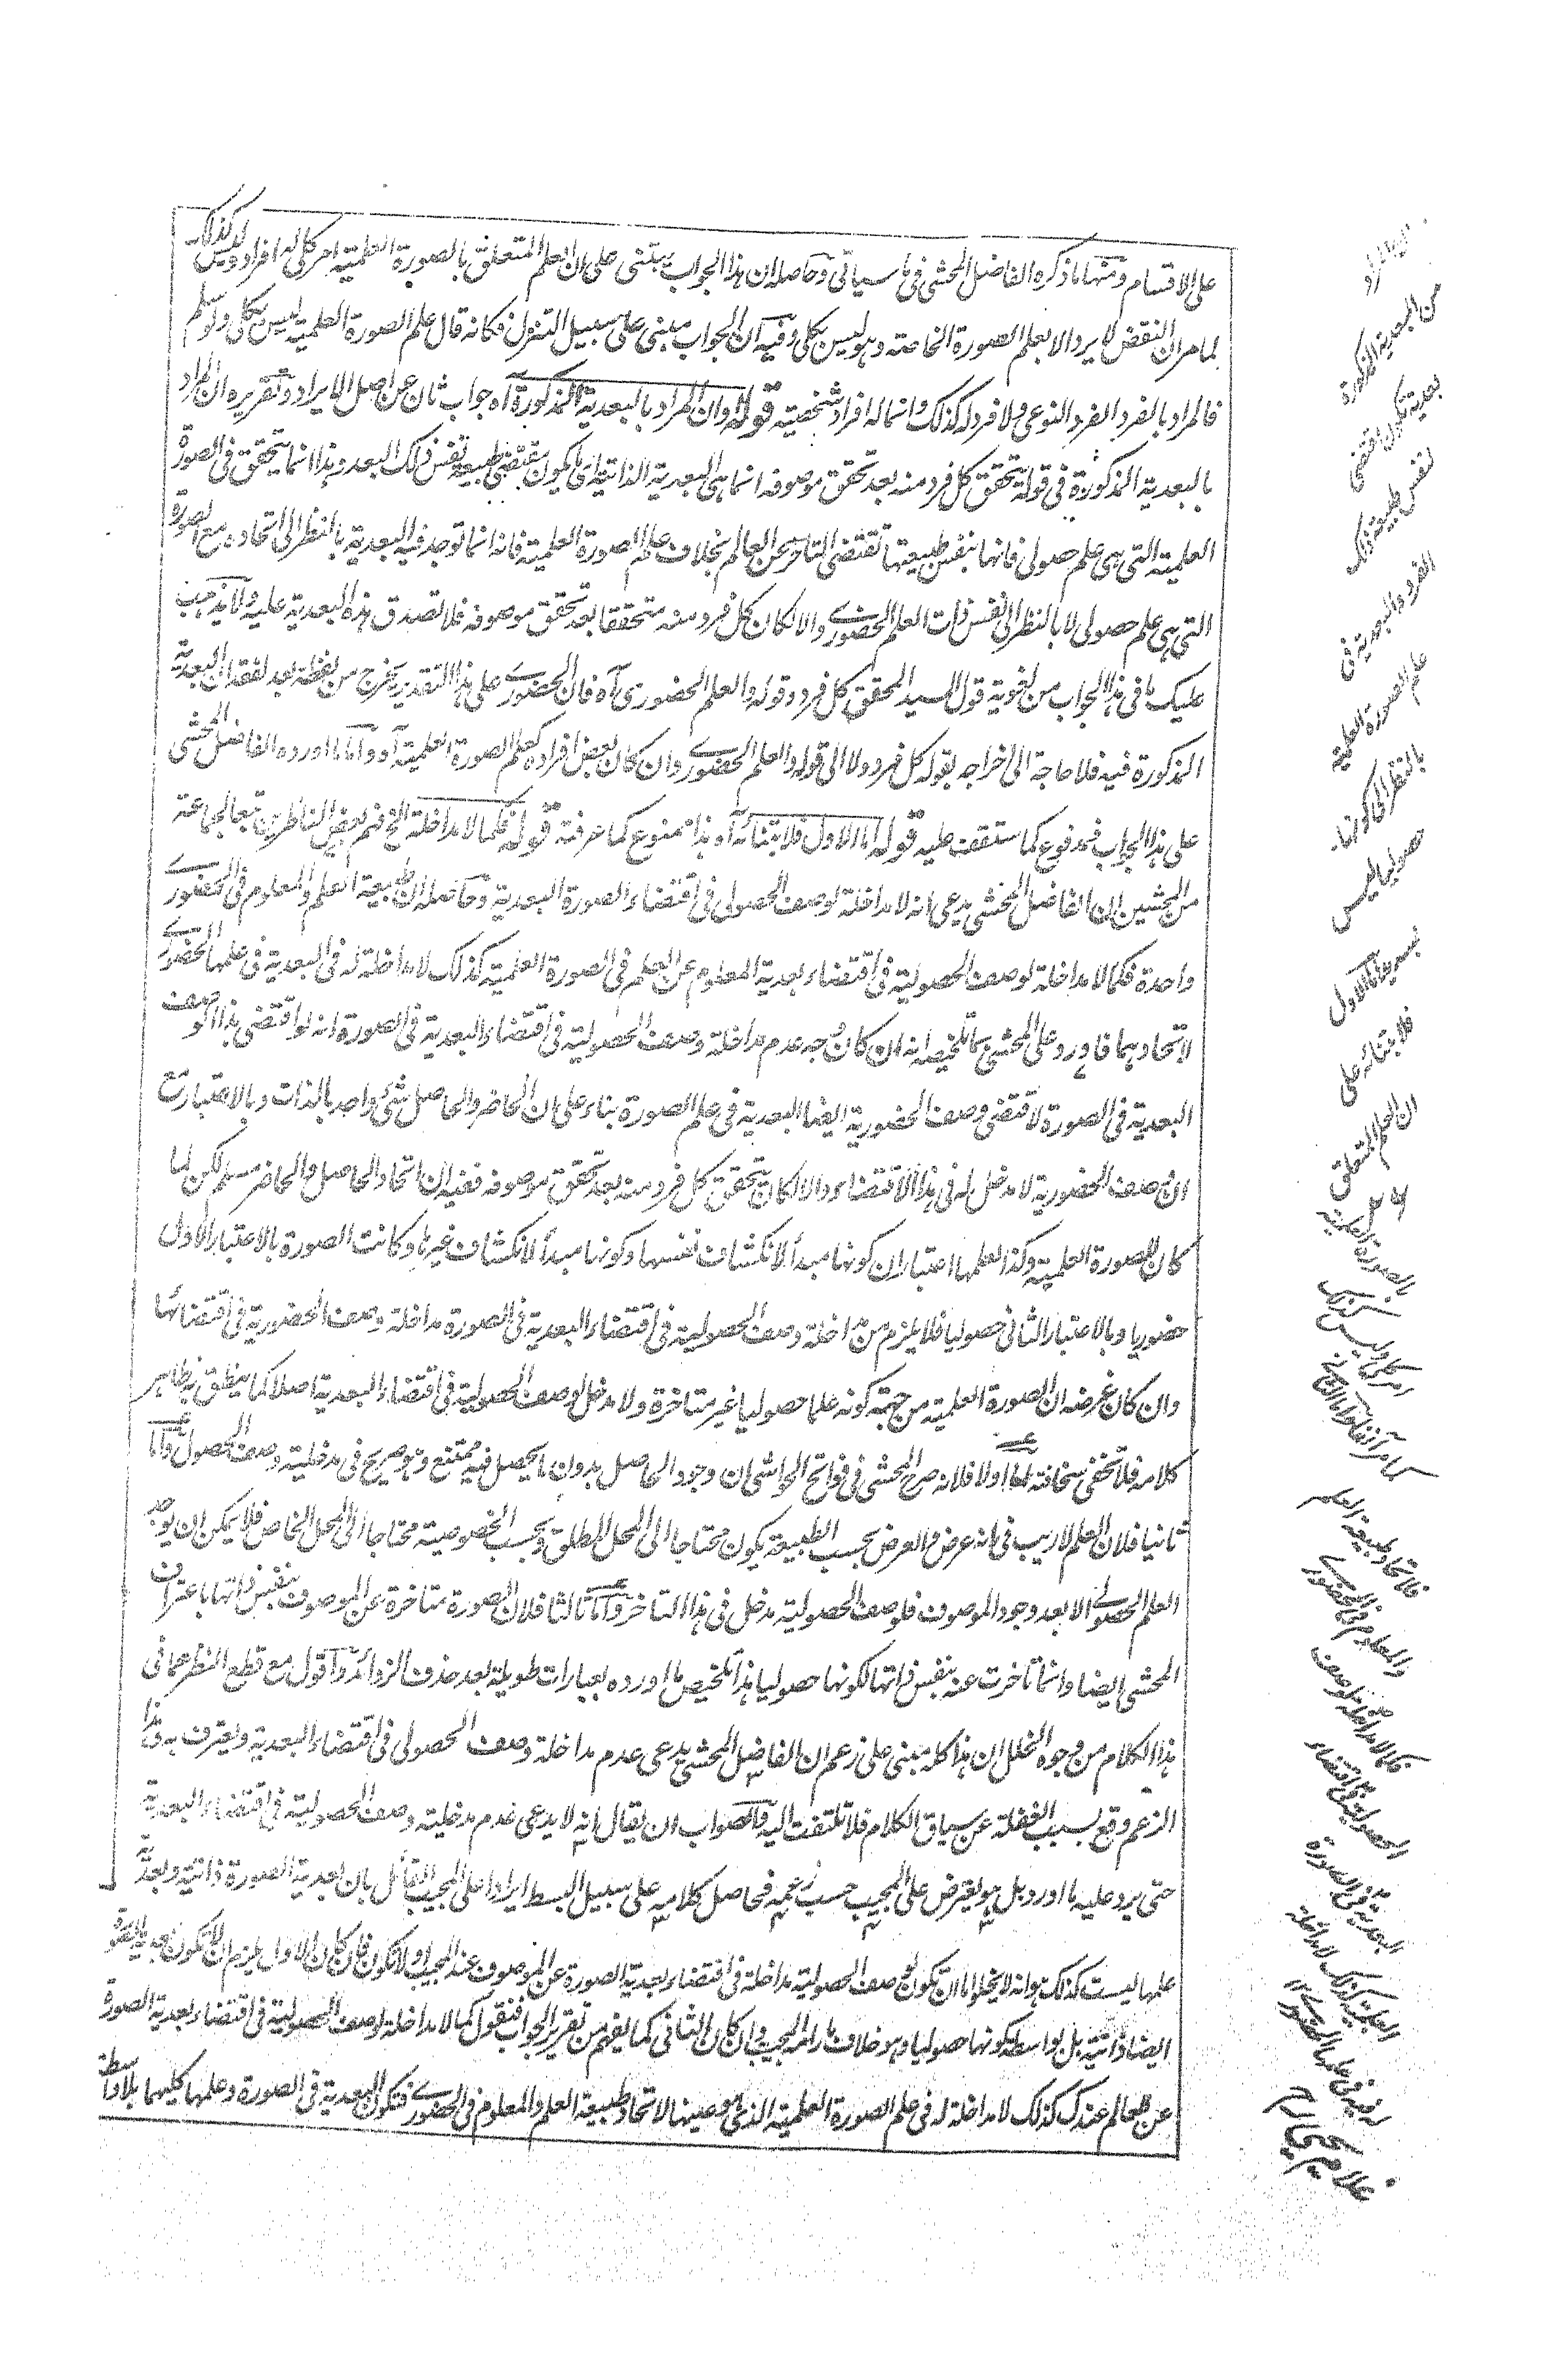 على الاقسام ومنها ما ذكره الفاضل المحشى فى ما سياتى وحاصله ان هذا الجواب يبتنى على ان العلم المتعلق بالصورة العلمية امر كلى له افراد وليس كذلك
لما مر ان النقض لا يرد الا بعلم الصورة الخاصة وهو ليس بكلى وفيه ان الجواب مبنى على سبيل التنزل فكانه قال علم الصورة العلمية ليس بكلى ولو سلم
فالمراد بالفرد الفرد النوعى ولا فرد له كذلك وانما له افراد شخصية قوله او ان المراد بالبعدية المذكورة آه جواب ثان عن اصل الايراد وتقريره ان المراد
بالبعدية المذكورة فى قوله يتحقق كل فرد منه بعد تحقق موصوفه انما هى البعدية الذاتية اى ما يكون مقتضى طبيعة نفس ذلك البعد وهذا انما يتحقق فى الصورة
العلمية التى هى علم حصولى فانها بنفس طبيعتها تقتضى التاخر عن العالم بخلاف علم الصورة العلمية فانه انما توجد فيه البعدية بالنظر الى اتحاده مع الصورة
التى هى علم حصولى لا بالنظر الى نفس ذات العلم الحضورى والا لكان كل فرد منه متحققا بعد تحقق موصوفه فلا تصدق هذه البعدية عليه ولا يذهب
عليك ما فى هذا الجواب من لغوية قول السيد المحقق كل فرد وقوله والعلم الحضورى آه فان الحضورى على هذا التقدير يخرج من لفظة بعد لفقدان البعدية
المذكورة فيه فلا حاجة الى اخراجه بقوله كل فرد ولا الى قوله والعلم الحضورى وان كان بعض افراده كعلم الصورة العلمية آه واما ما اورده الفاضل المحشى
على هذا الجواب فمدفوع كما ستقف عليه قوله اما الاول فلابتنائه آه هذا ممنوع كما عرفته قوله فكما لا مداخلة الخ فهم بعض الناظرين تبعا لجماعة
من المحشين ان الفاضل المحشى يدعى انه لا مداخلة لوصف الحصولى فى اقتضاء الصورة البعدية وحاصله ان طبيعة العلم والمعلوم فى الحضورى
واحدة فكما لا مداخلة لوصف الحصولية فى اقتضاء بعدية المعلوم عن العلم فى الصورة العلمية كذلك لا مداخلة له فى البعدية فى علمها الحضورى
لاتحادهما فاورد على المحشى بما تلخيصه انه ان كان وجه عدم مداخلة وصف الحصولية فى اقتضاء البعدية فى الصورة انه لو اقتضى هذا الوصف
البعدية فى الصورة لاقتضى وصف الحضورية ايضا البعدية فى علم الصورة بناء على ان الحاضر والحاصل شئ واحد بالذات وبالاعتبار مع
ان وصف الحضورية لا مدخل له فى هذا الاقتضاء والا لكان يتحقق كل فرد منه بعد تحقق موصوفه ففيه ان اتحاد الحاصل والحاضر مسلم لكن لما
كان للصورة العلمية وكذا لعلمها اعتباران كونها مبدأ لانكشاف نفسها وكونها مبدأ لانكشاف غيرها وكانت الصورة بالاعتبار الاول
حضوريا وبالاعتبار الثانى حصوليا فلا يلزم من مداخلة وصف الحصولية فى اقتضاء البعدية فى الصورة مداخلة وصف الحضورية فى اقتضائها
وان كان غرضه ان الصورة العلمية من جهة كونه علما حصوليا غير متاخرة ولا مدخل لوصف الحصولية فى اقتضاء البعدية اصلا كما ينطق به ظاهر
كلامه فلا تخفى سخافته اما اولا فلانه صرح المحشى فى فواتح الحواشى ان وجود الحاصل بدون ما يحصل فيه ممتنع وهو صريح فى مدخلية وصف الحصول واما
ثانيا فلان العلم لا ريب فى انه عرض والعرض بحسب الطبيعة يكون محتاجا الى المحل المطلق وبحسب الخصوصية محتاجا الى المحل الخاص فلا يمكن ان يوجد
العلم الحصولى الا بعد وجود الموصوف فلوصف الحصولية مدخل فى هذا التاخر واما ثالثا فلان الصورة متاخرة عن الموصوف بنفس ذاتها باعتراف
المحشى ايضا وانما تاخرت عنه بنفس ذاتها لكونها حصوليا هذا تلخيص ما اورده بعبارات طويلة بعد حذف الزوائد واقول مع قطع النظر عما فى
هذا الكلام من وجوه الخلل ان هذا كله مبنى على زعم ان الفاضل المحشى يدعى عدم مداخلة وصف الحصولى فى اقتضاء البعدية ويعترف به وهذا
الزعم وقع بسبب الغفلة عن سياق الكلام فلا تلتفت اليه والصواب ان يقال انه لا يدعى عدم مدخلية وصف الحصولية فى اقتضاء البعدية
حتى يرد عليه ما اورد بل هو يعترض على المجيب حسب زعمه فحاصل كلامه على سبيل البسط ايرادا على المجيب القائل بان بعدية الصورة ذاتية وبعدية
علمها ليست كذلك هو انه لا يخلو اما ان تكون لوصف الحصولية مداخلة فى اقتضاء بعدية الصورة عن الموصوف عند المجيب او لا تكون فان كان الاول يلزم ان لا تكون بعدية الصورة
ايضا ذاتية بل بواسطة كونها حصوليا وهو خلاف ما رامه المجيب وان كان الثانى كما يفهم من تقرير الجواب فنقول كما لا مداخلة لوصف الحصولية فى اقتضاء بعدية الصورة
عن العالم عندك كذلك لا مداخلة له فى علم الصورة العلمية الذى هو عينها لاتحاد طبيعة العلم والمعلوم فى الحضورى فتكون البعدية فى الصورة وعلمها كليهما بلا واسطة
من البعدية المذكورة
بعدية تكون مقتضى
لنفس طبيعة ذلك
الفرد والبعدية فى
علم الصورة العلمية
بالنظر الى كونها
حصوليا ليس
اما الاول
فلابتنائه على
ان العلم المتعلق
٢٦
بالصورة العلمية
امر كلى وليس كذلك
كما مر آنفا واما الثانى
فلاتحاد طبيعة العلم
والمعلوم فى الحضورى
فكما لا مداخلة لوصف
الحصولية فى اقتضاء
البعدية فى الصورة
العلمية كذلك لا مداخلة
له فى علمها الحضورى
غلام يحيى